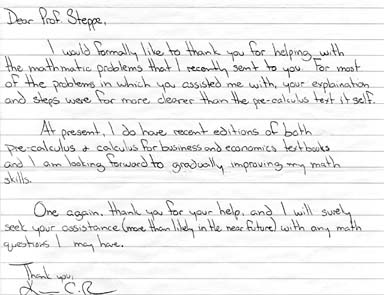 Dear Prof. Steppe,
I would formally like to thank you for helping with
the mathmatic problems that I recently sent to you. For most
of the problems in which you assisted me with, your explaination
and steps were far more clearer than the pre-calculus text it self.
At present, I do have recent editions of both
pre-calculus & calculus for business and economics textbooks
and I am looking forward to gradually improving my math
skills.
One again, thank you for your help, and I will surely
seek your assistance (more than likely in the near future) with any math
questions I may have.
Thank you,
C.